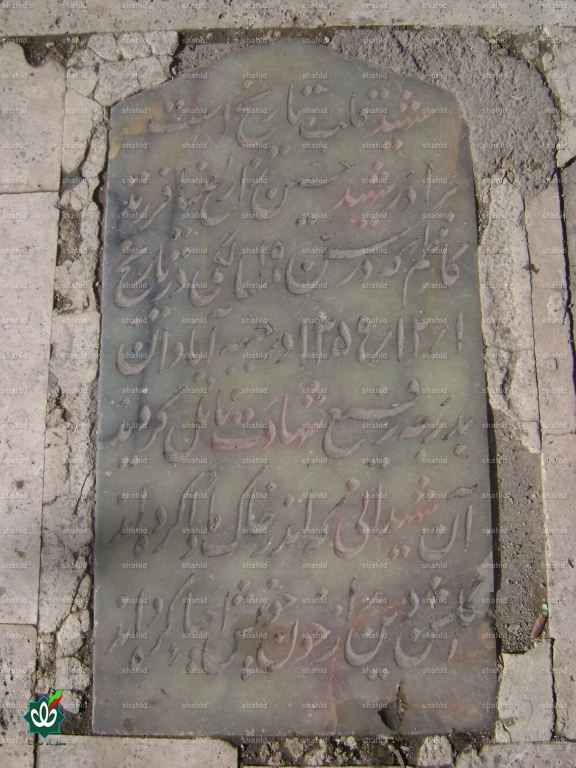 شهید قلب تاریخ است
برادر شهید حسین زارع نیا فرزند
کاظم که در سن ۱۹ سالگی در تاریخ
در جبهه آبادان
بدرجه رفیع شهادت نائل گردید
آن شهیدانی که اندر خاک ماوا کرده‌اند
گلشن دین را ز خون خویش احیا کرده‌اند
shahid